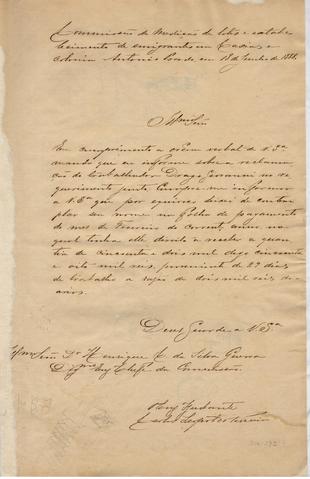 Commissão de Medição de lotes e estabe-
lecimento de emigrantes em Caxias e
Colonia Antonio Prado em 18 de Junho de 1888.
Illmo Snr
Em cumprimento a ordem verbal de V. Sª
mando que eu informe sobre a reclama-
ção do trabalhador Drago Giovanni no re-
querimento junto Cumpre-me informar
a V. Sª que por equivoco deixei de contem-
plar seu nome na folha de pagamento
do mez de Fevereiro do corrente anno, no
qual tinha elle direito a receber a quan-
tia de cincoenta e dois mil digo cincoenta
e oito mil reis, proveniente de 29 dias
de trabalho a razão de dois mil reis di-
arios.
Deus Guarde a V. Sª
Illmo Snr Dr Henrique
Da Silva
Digmo Eng Chefe da Commissão
O Eng Ajudante